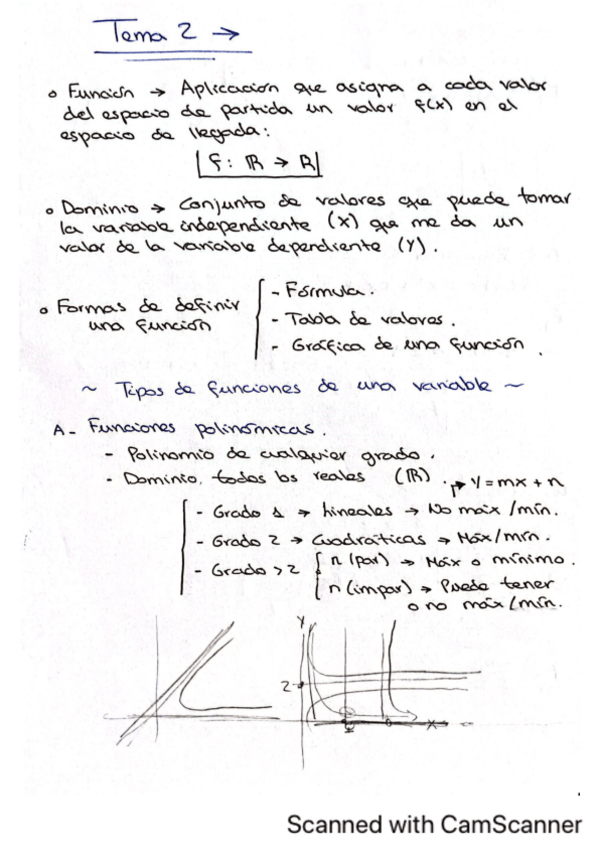 Tema 2 →
○ Función → Aplicación que asigna a cada valor
del espacio de partida un valor f(x) en el
espacio de llegada:
|f: ℝ → ℝ|
○ Dominio → Conjunto de valores que puede tomar
la variable independiente (X) que me da un
valor de la variable dependiente (Y).
○ Formas de definir
una función
- Fórmula.
- Tabla de valores.
- Gráfica de una función.
~ Tipos de funciones de una variable ~
A- Funciones polinómicas.
- Polinomio de cualquier grado.
- Dominio, todos los reales (ℝ).
→ Y = mx + n
- Grado 1 → Lineales → No máx/mín.
- Grado 2 → Cuadráticas → Máx/mín.
- Grado >2
n (par) → Máx o mínimo.
n (impar) → Puede tener
o no máx/mín.
Y
2
X
Scanned with CamScanner